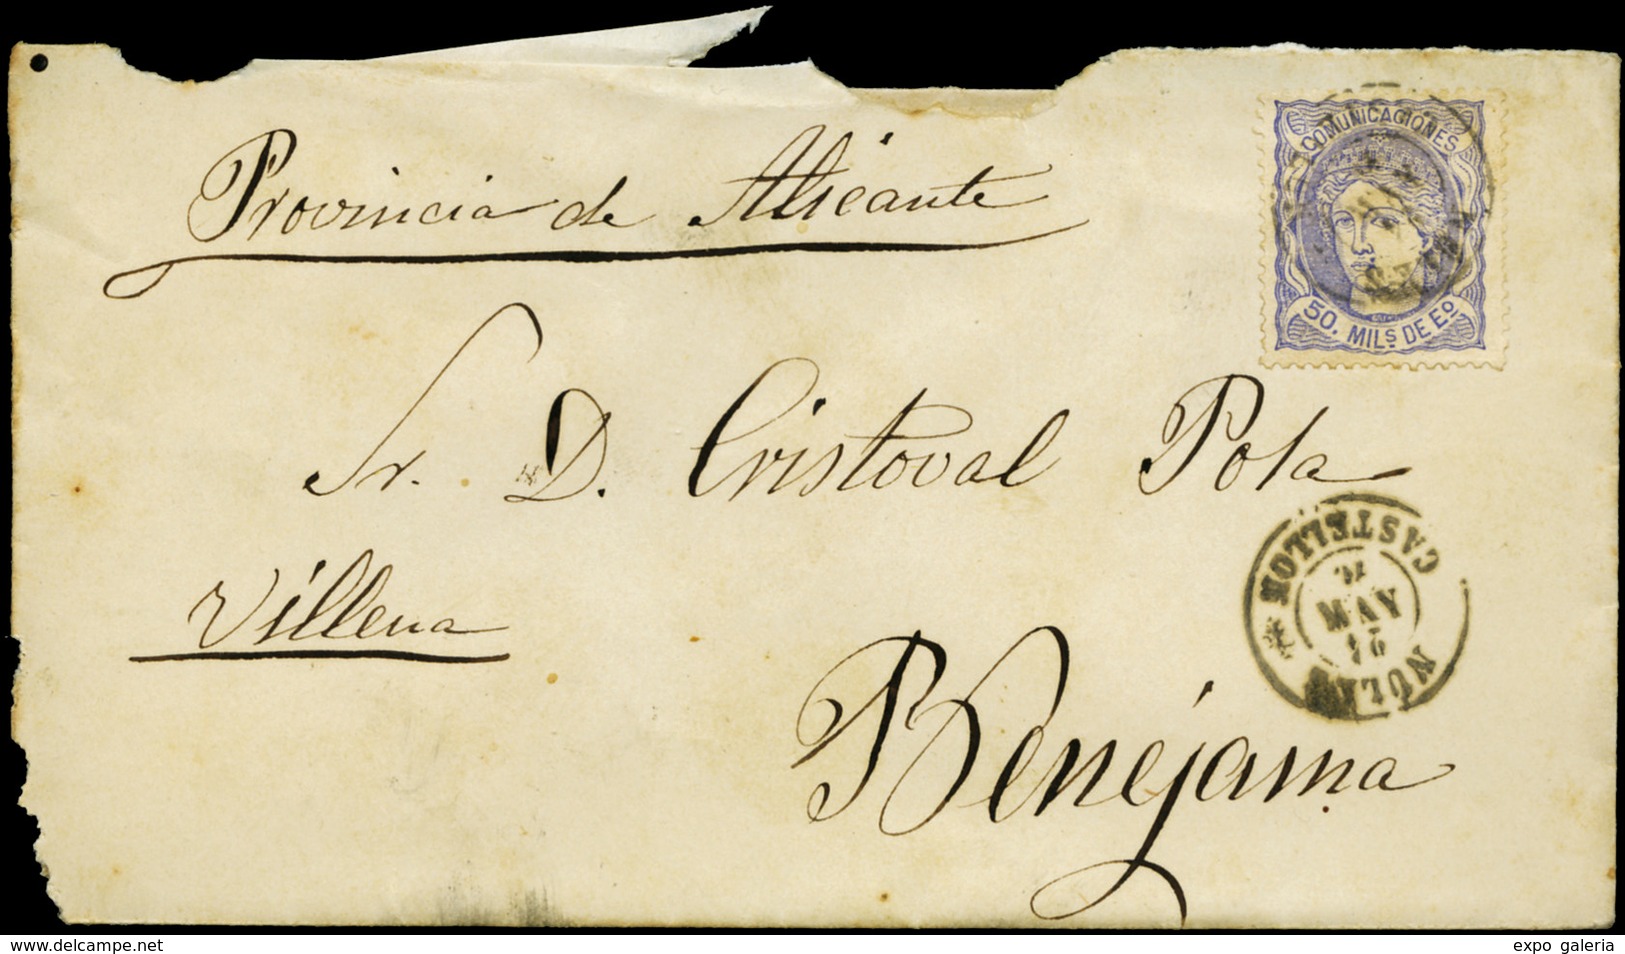 Provincia de Alicante
COMUNICACIONES
50. MILS DE Eº
Sr. D. Cristoval Pola
CASTELLON
MAY
NULES
Villena
Benejama
www.delcampe.net
expo galeria